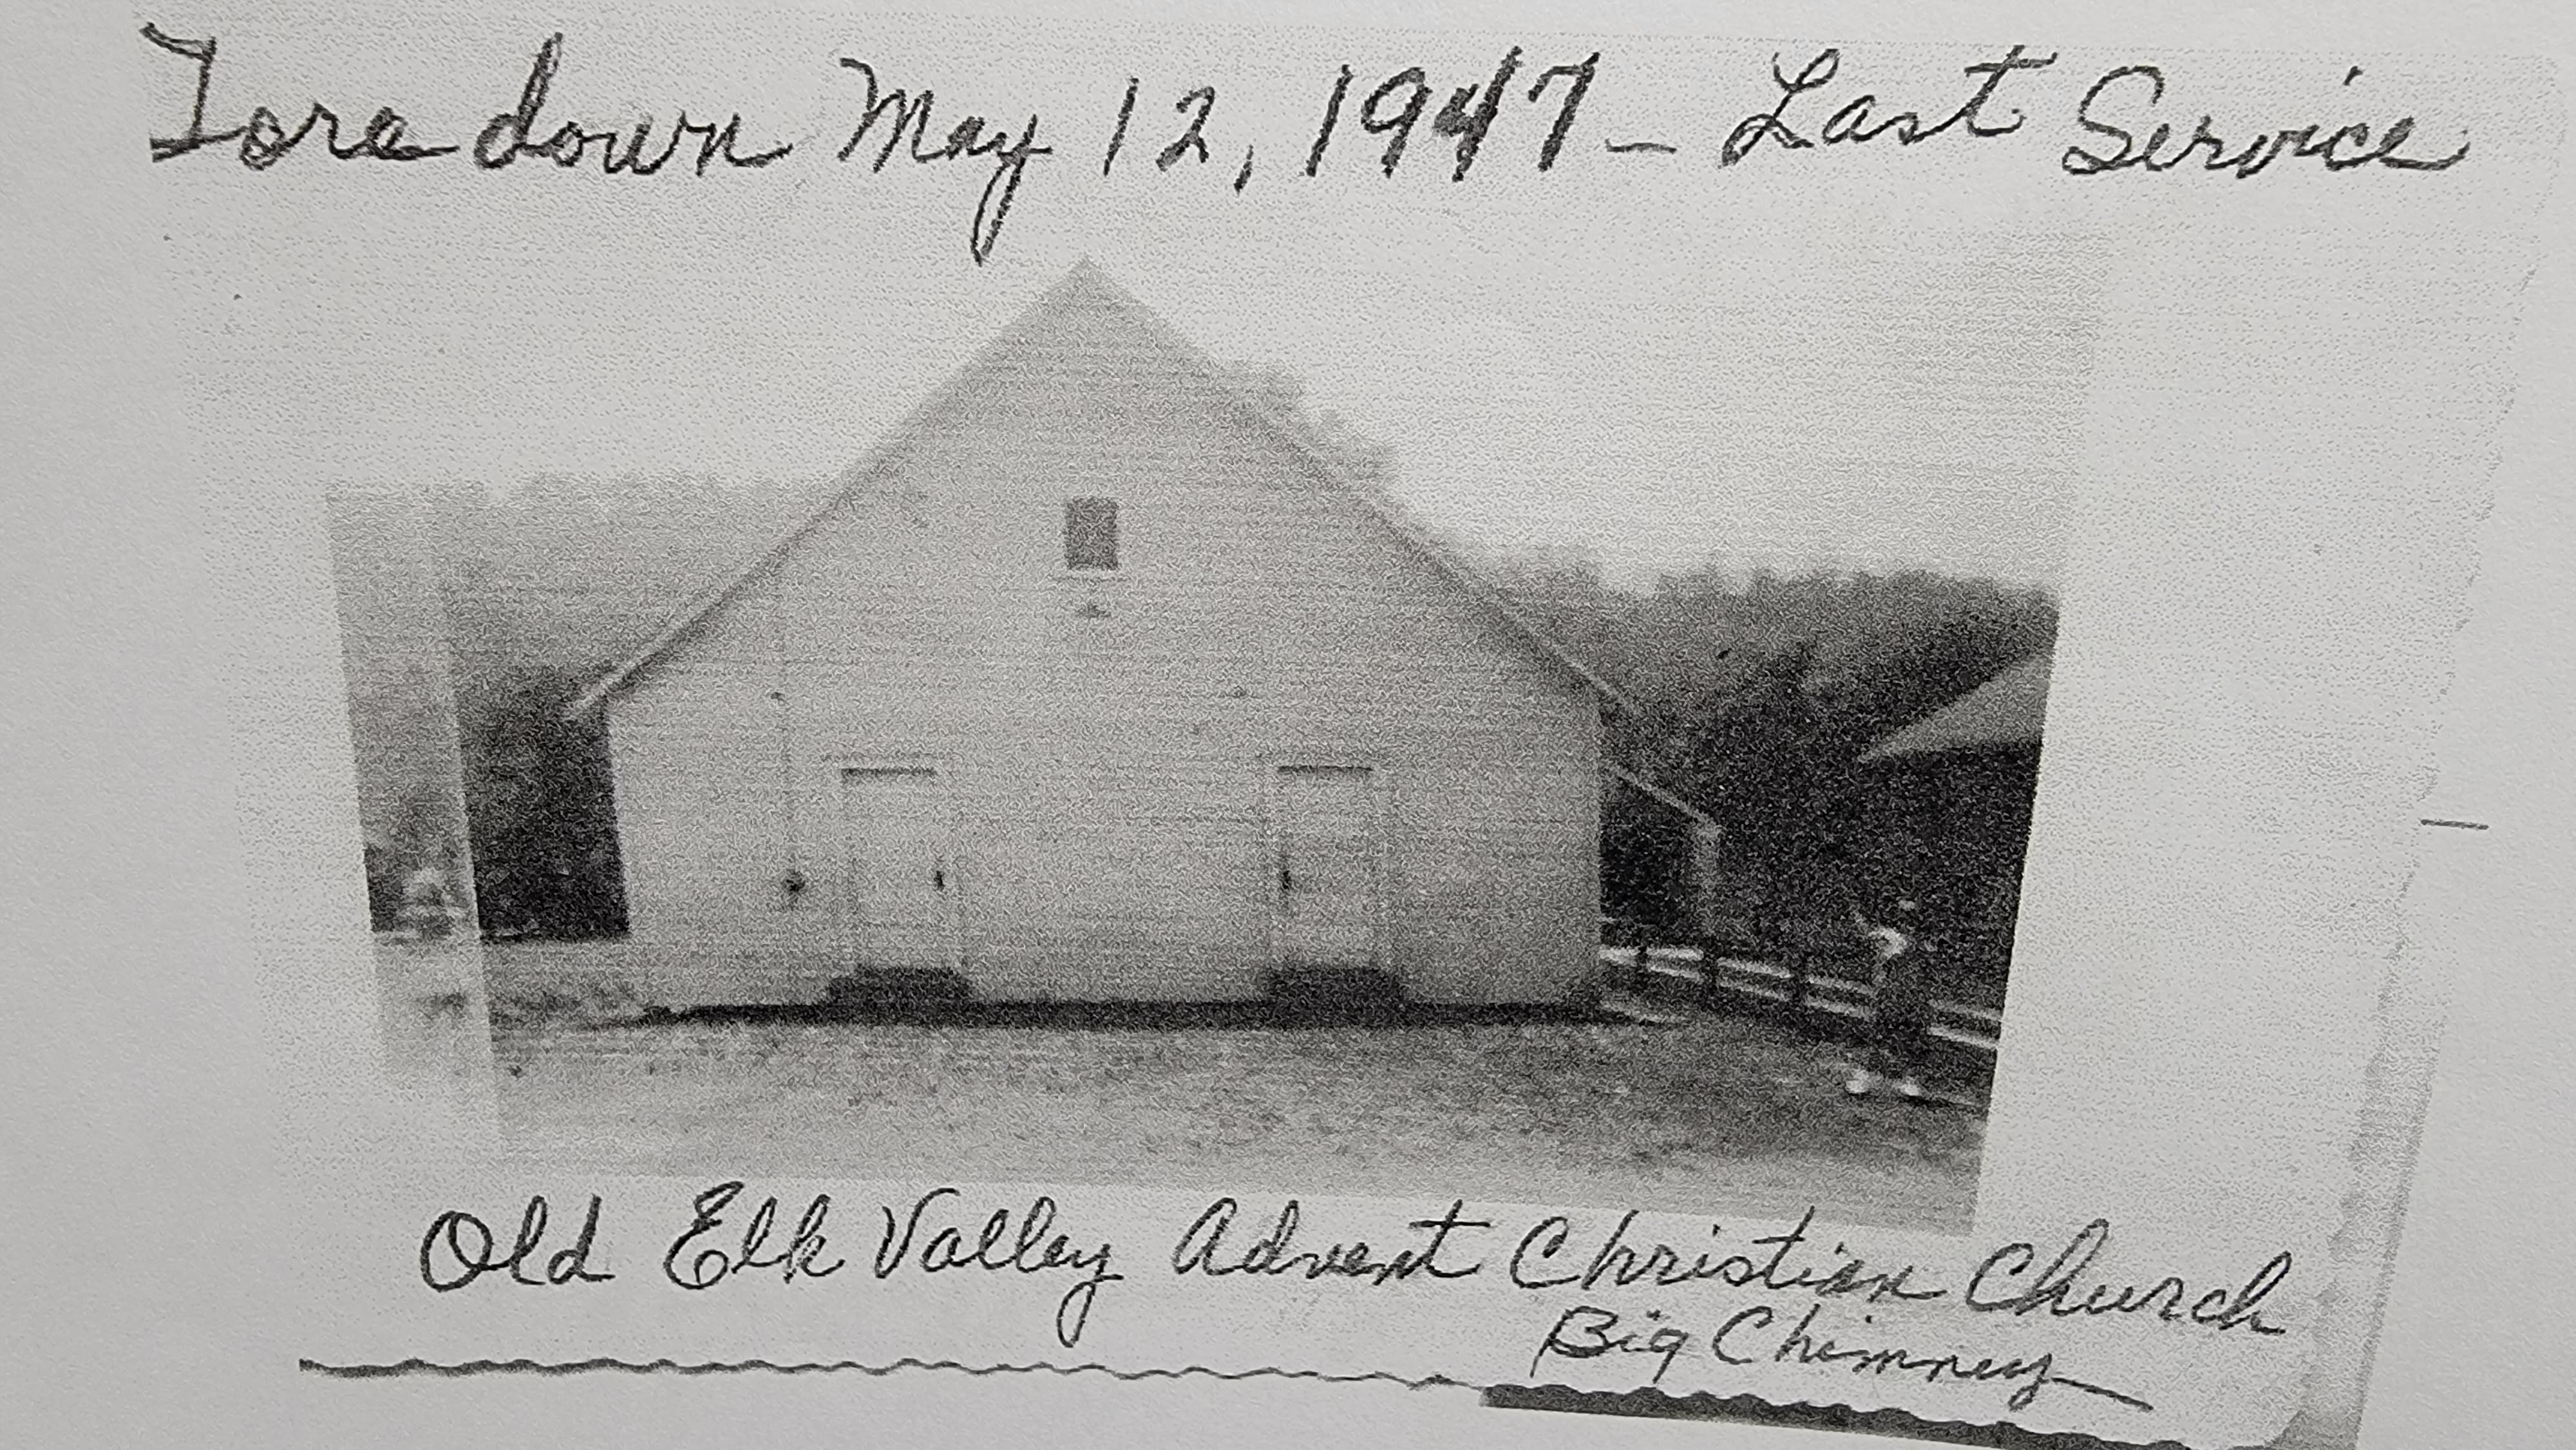 Tore down May 12, 1947 - Last Service
Old Elk Valley Advent Christian Church
Big Chimney